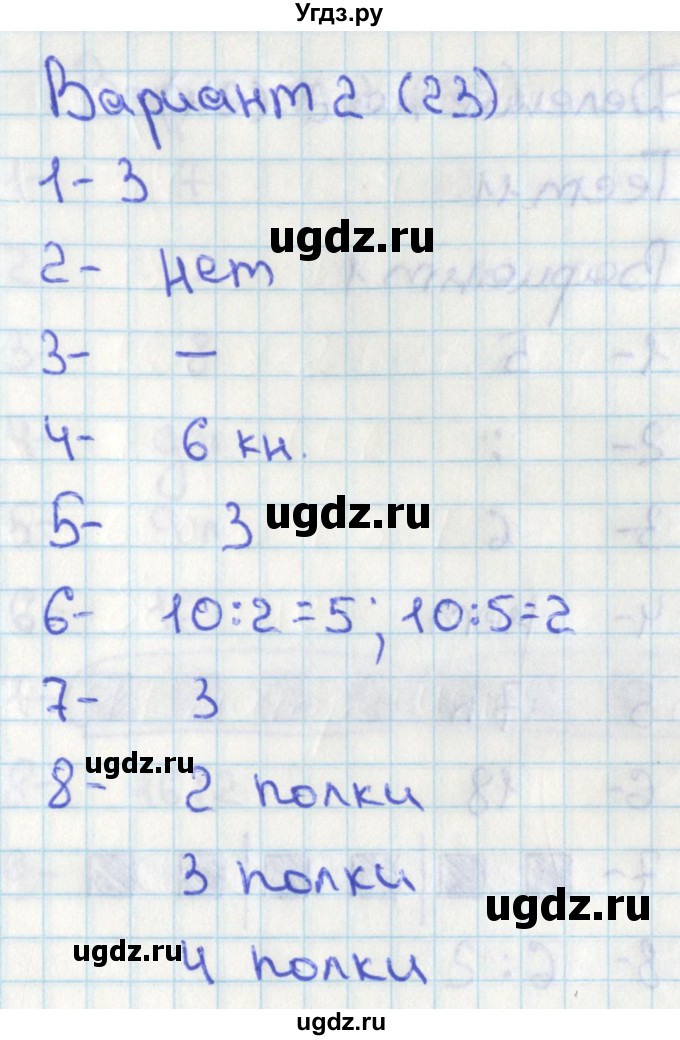 Угдз.ру
Вариант 2 (23)
1- 3
ugdz.ru
2- нет
3- —
4- 6 кн.
ugdz.ru
5- 3
6- 10:2=5; 10:5=2
7- 3
ugdz.ru
8- 2 полки
3 полки
ugdz.ru
ugdz.ru
4 полки
ugdz.ru